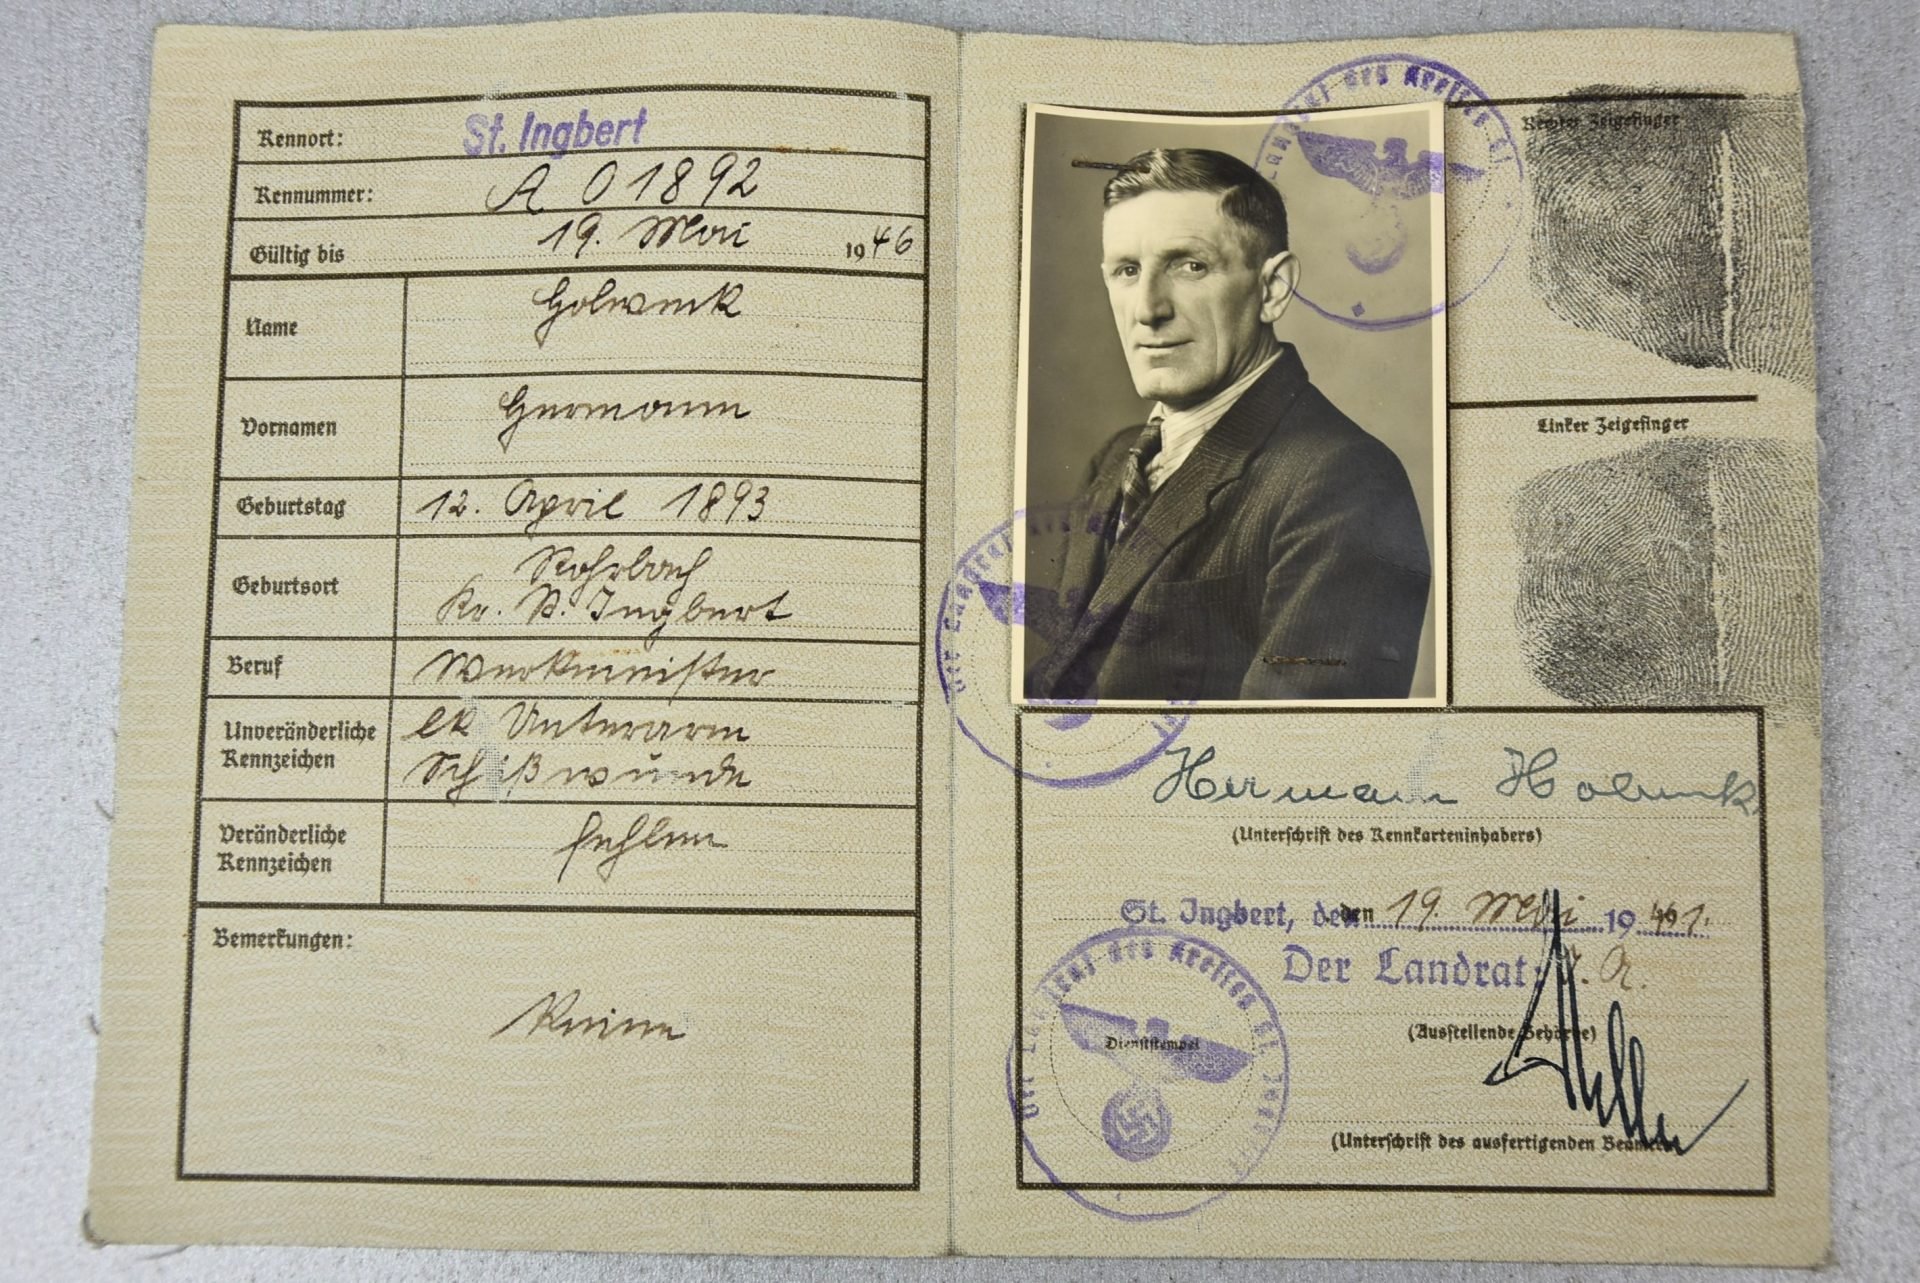 Kennort:
St. Ingbert
Kennummer:
A 01892
Gültig bis
19. Mai 1946
Name
Holweck
Vornamen
Hermann
Geburtstag
12. April 1893
Geburtsort
Rohrbach
Kr. St. Ingbert
Beruf
Werkmeister
Unveränderliche
Kennzeichen
lk Unterarm
Schußwunde
Veränderliche
Kennzeichen
fehlen
Bemerkungen:
Keine
Rechter Zeigefinger
Linker Zeigefinger
Hermann Holweck
(Unterschrift des Kennkarteninhabers)
St. Ingbert, den 19. Mai 1941.
Der Landrat: J. A.
(Ausstellende Behörde)
Dienststempel
(Unterschrift des ausfertigenden Beamten)
Der Landrat des Kreises St. Ingbert